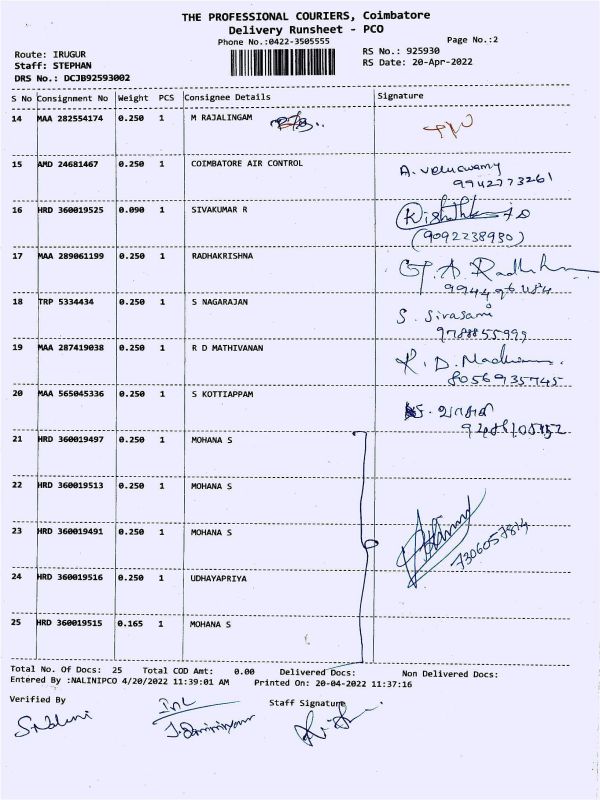 THE PROFESSIONAL COURIERS, Coimbatore
Delivery Runsheet - PCO
Phone No.:0422-3505555 Page No.:2
Route: IRUGUR RS No.: 925930
Staff: STEPHAN RS Date: 20-Apr-2022
DRS No.: DCJB92593002
S No Consignment No Weight PCS Consignee Details Signature
14 MAA 282554174 0.250 1 M RAJALINGAM
15 AMD 24681467 0.250 1 COIMBATORE AIR CONTROL A. Veluswamy
9942773261
16 HRD 360019525 0.090 1 SIVAKUMAR R
(9092238980)
17 MAA 289061199 0.250 1 RADHAKRISHNA G. A. Radhakrishna
18 TRP 5334434 0.250 1 S NAGARAJAN S. Sivasami
9788855999
19 MAA 287419038 0.250 1 R D MATHIVANAN R. D. Madhivanan
8056935745
20 MAA 565045336 0.250 1 S KOTTIAPPAM
21 HRD 360019497 0.250 1 MOHANA S
22 HRD 360019513 0.250 1 MOHANA S
23 HRD 360019491 0.250 1 MOHANA S
7306057814
24 HRD 360019516 0.250 1 UDHAYAPRIYA
25 HRD 360019515 0.165 1 MOHANA S
Total No. Of Docs: 25 Total COD Amt: 0.00 Delivered Docs: Non Delivered Docs:
Entered By :NALINIPCO 4/20/2022 11:39:01 AM Printed On: 20-04-2022 11:37:16
Verified By Staff Signature